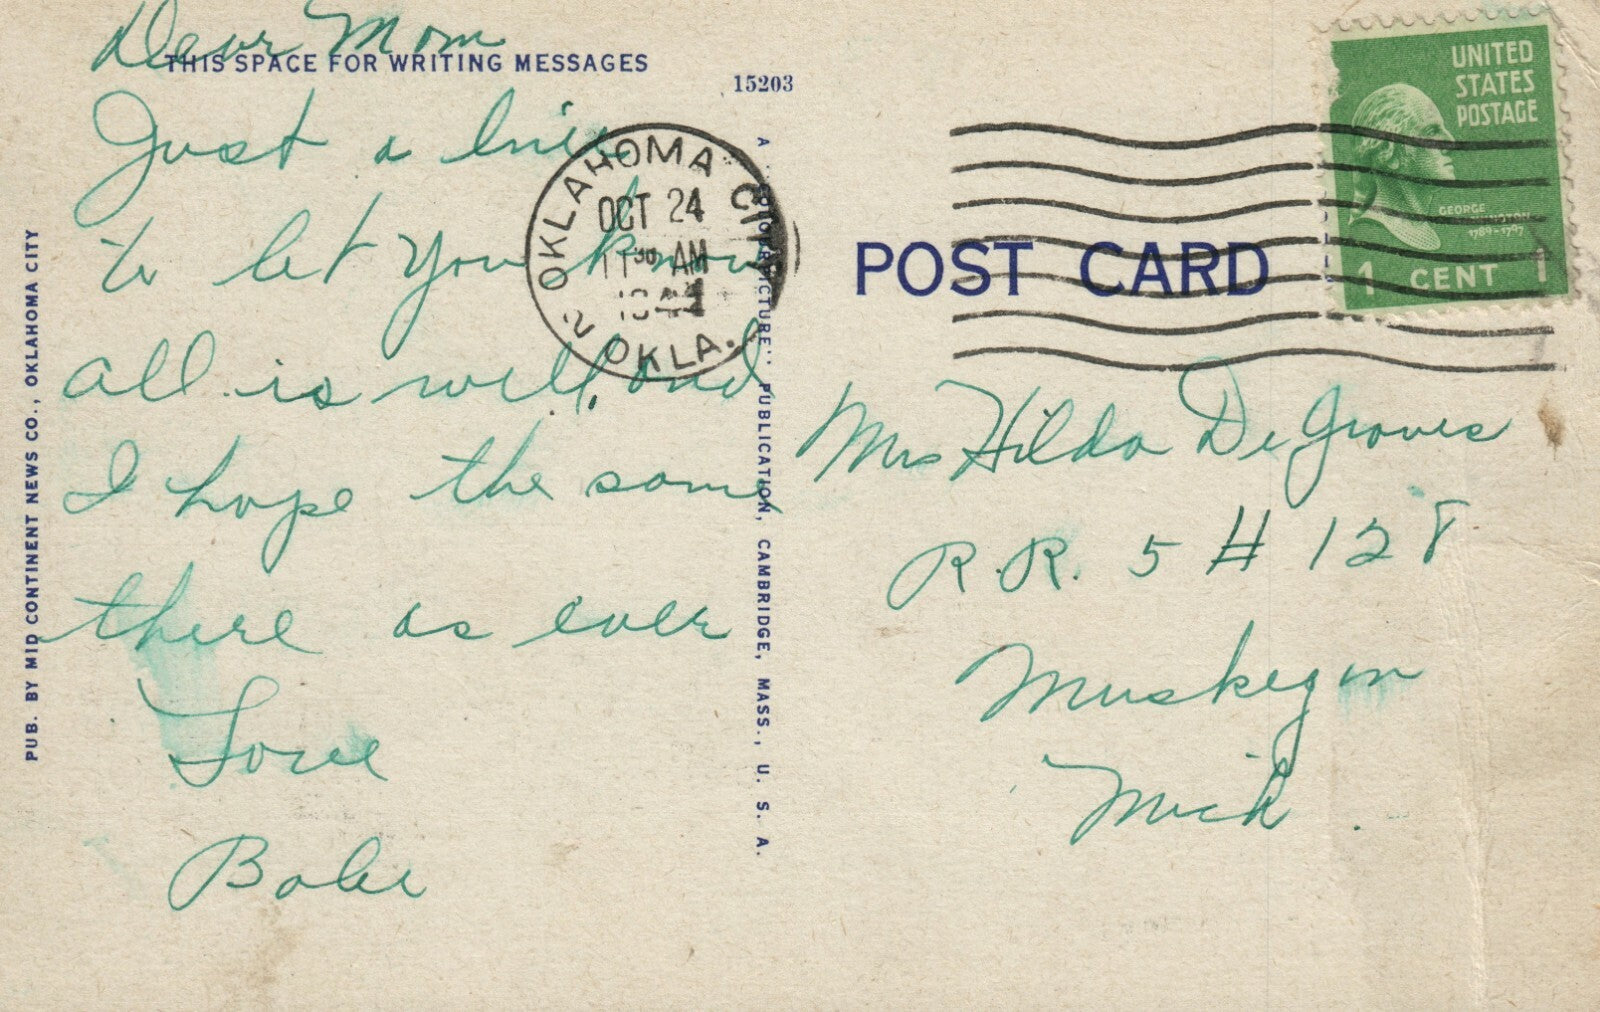 Dear Mom
THIS SPACE FOR WRITING MESSAGES
15203
Just a line
to let you know
all is well, and
I hope the same
there as ever
Love
Babe
PUB. BY MID CONTINENT NEWS CO., OKLAHOMA CITY
A "COLOURPICTURE" PUBLICATION, CAMBRIDGE, MASS., U. S. A.
OKLAHOMA CITY
OCT 24
11 30 AM
2 OKLA.
POST CARD
UNITED
STATES
POSTAGE
GEORGE
WASHINGTON
1789-1797
1 CENT 1
Mrs Hilda DeGroves
R.R. 5 # 128
Muskegon
Mich.